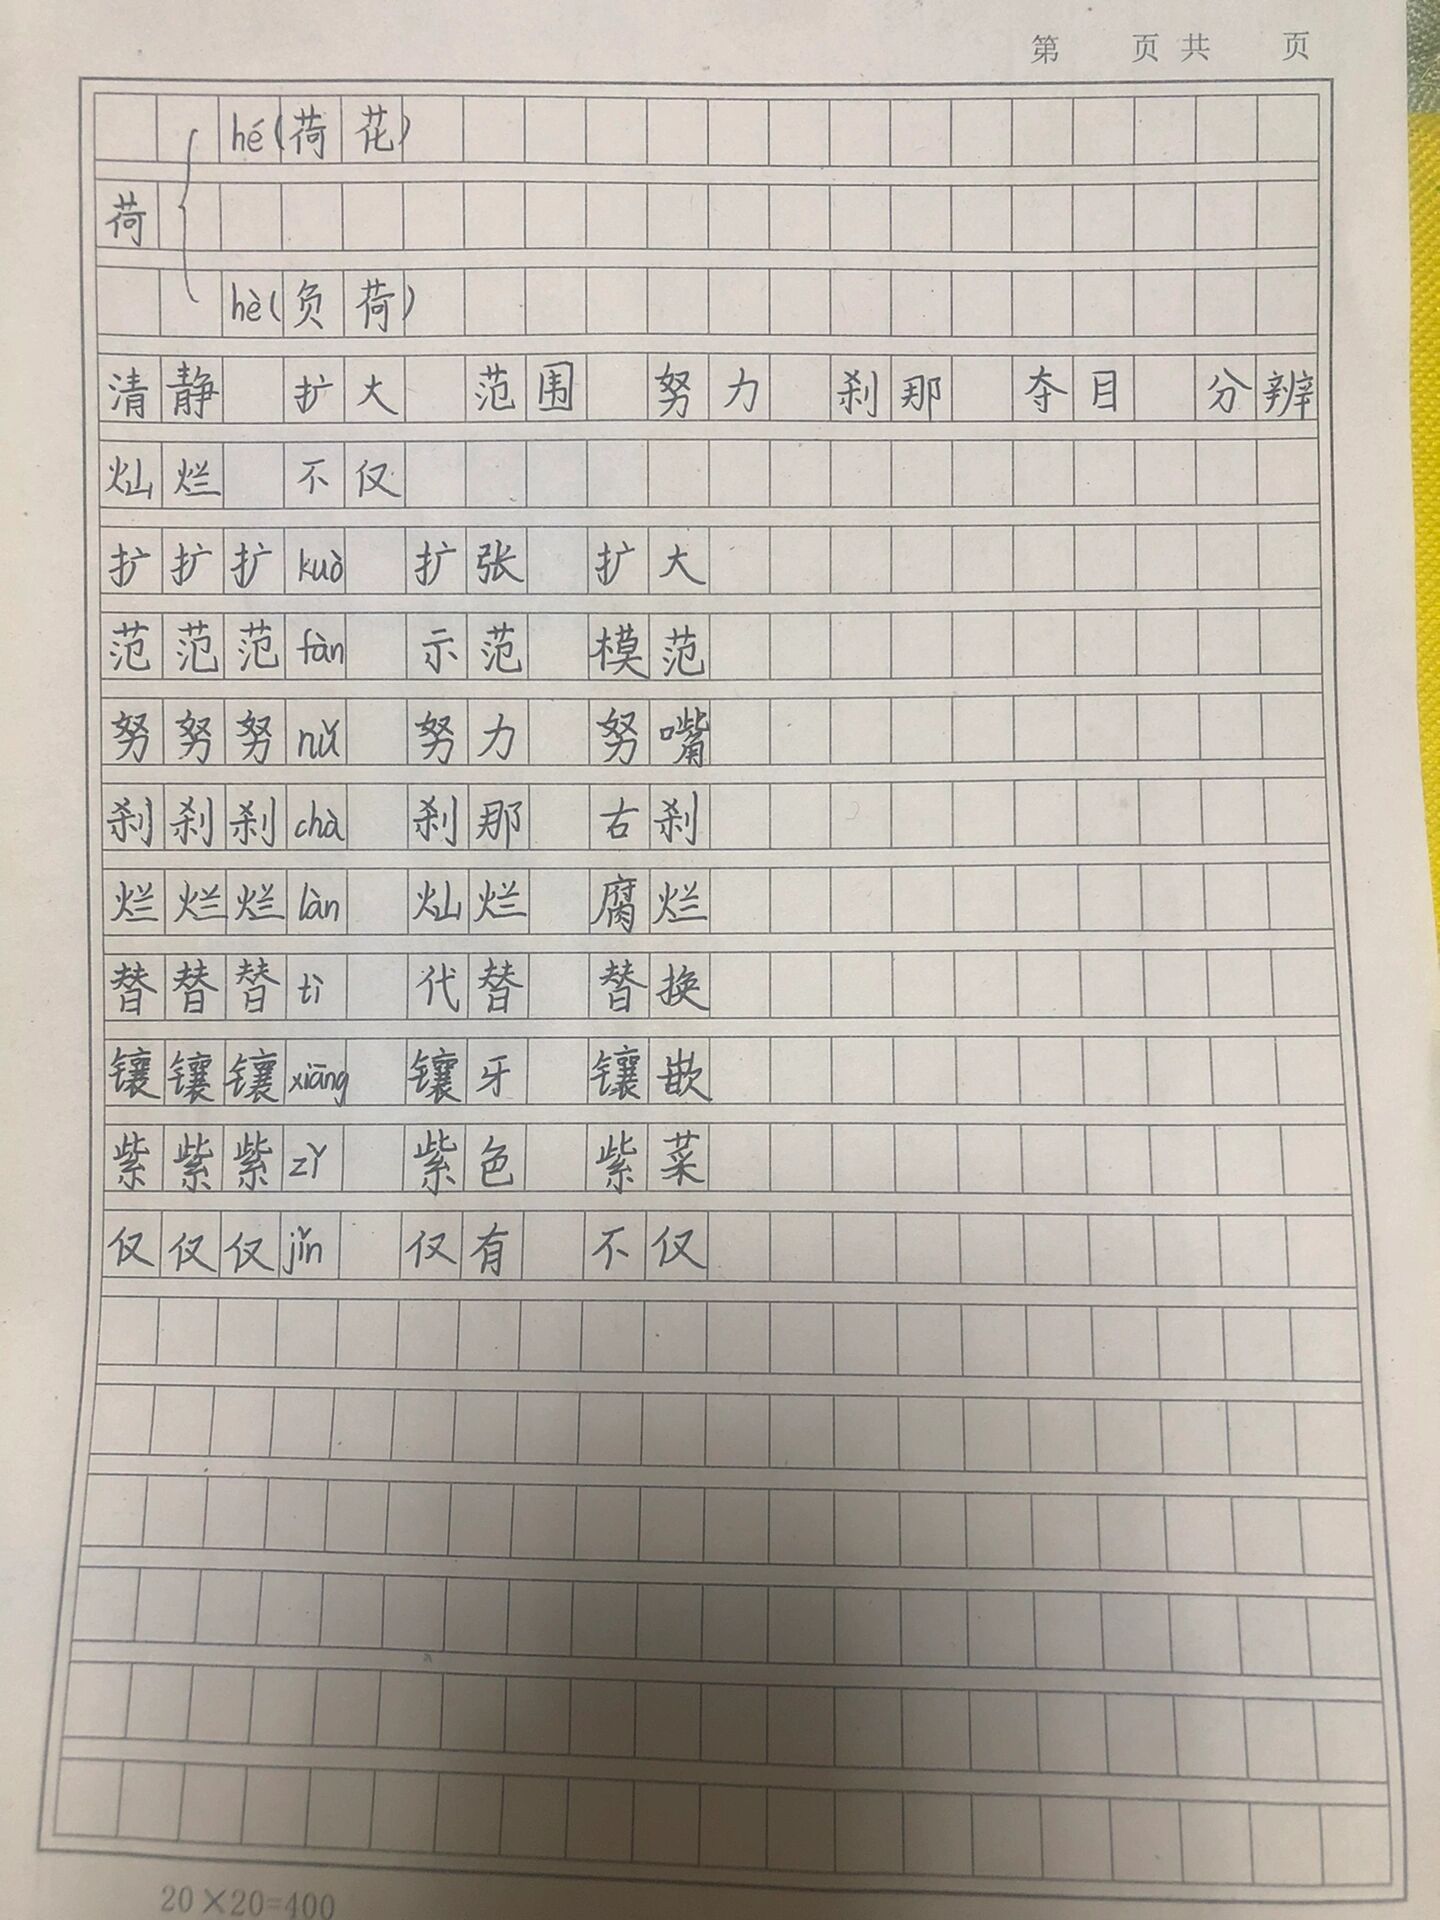 第 页 共 页
hé(荷花)
荷
hè(负荷)
清静 扩大 范围 努力 刹那 夺目 分辨
灿烂 不仅
扩扩扩 kuò 扩张 扩大
范范范 fàn 示范 模范
努努努 nǔ 努力 努嘴
刹刹刹 chà 刹那 右刹
烂烂烂 làn 灿烂 腐烂
替替替 tì 代替 替换
镶镶镶 xiāng 镶牙 镶嵌
紫紫紫 zǐ 紫色 紫菜
仅仅仅 jǐn 仅有 不仅
20×20=400